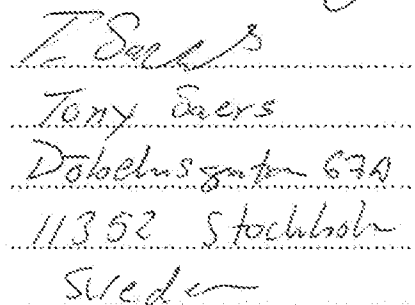 T Saers
Tony Saers
Döbelnsgatan 67A
11352 Stockholm
Sweden